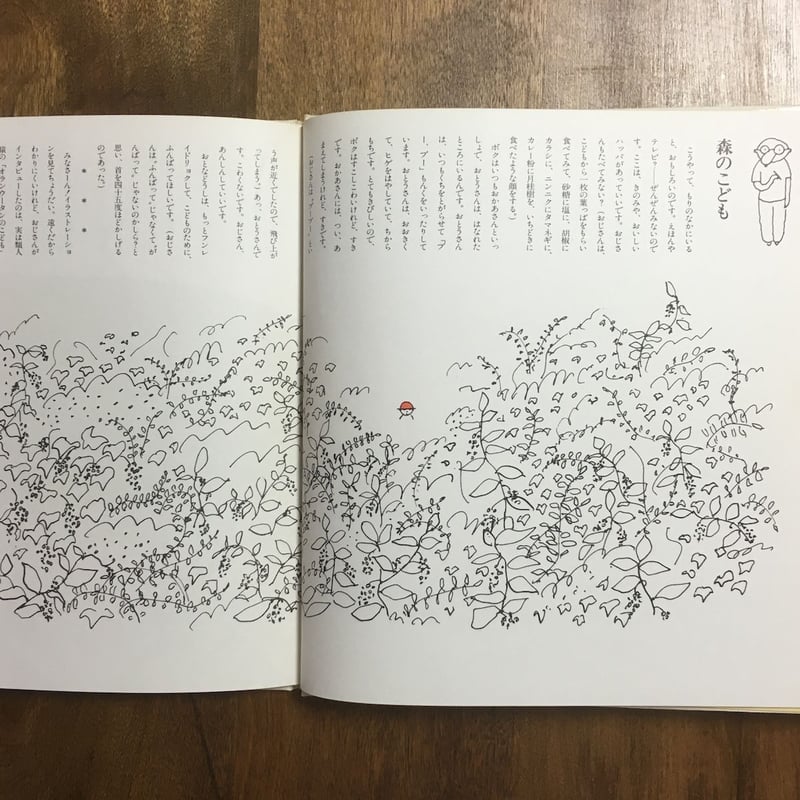 森のこども
こうやって、もりのなかにいる
と、おもしろいのです。えほんや
テレビ？――ぜんぜんみないので
す。ここは、きのみや、おいしい
ハッパがあっていいです。おじさ
んもたべてみない？（おじさんは、
こどもから一枚の葉っぱをもらい
食べてみて、砂糖に塩に、胡椒に
カラシに、ニンニクにタマネギに、
カレー粉に月桂樹を、いちどきに
食べたような顔をする。）
ボクはいつもおかあさんといっ
しょで、おとうさんは、はなれた
ところにいるんです。おとうさん
は、いつもくちをとがらせて「プ
ー、プー」もんくをいったりして
います。おとうさんは、おおきく
て、ヒゲをはやしていて、ちから
もちです。とてもきびしいので、
ボクはすこしこわいけれど、すき
です。おかあさんには、つい、あ
まえてしまうけれど、すきです。
（おじさんは、「プープー」とい
う声が近くでしたので、飛び上が
ってしまう。）あっ、おとうさんで
す。こわくないです。おじさん、
あんしんしていいです。
おとなどうしは、もっとフンレ
イドリョクして、こどものために、
ふんばってほしいです。（おじさ
んは、“ふんばって”じゃなくて、“が
んばって”じゃないのかしら？と
思い、首を四十五度ほどかしげる
のであった。）
＊ ＊ ＊
みなさーん！イラストレーショ
ンを見てちょうだい。遠くだから
わかりにくいけれど、おじさんが
インタビューしたのは、実は類人
猿の「オランウータンのこども」